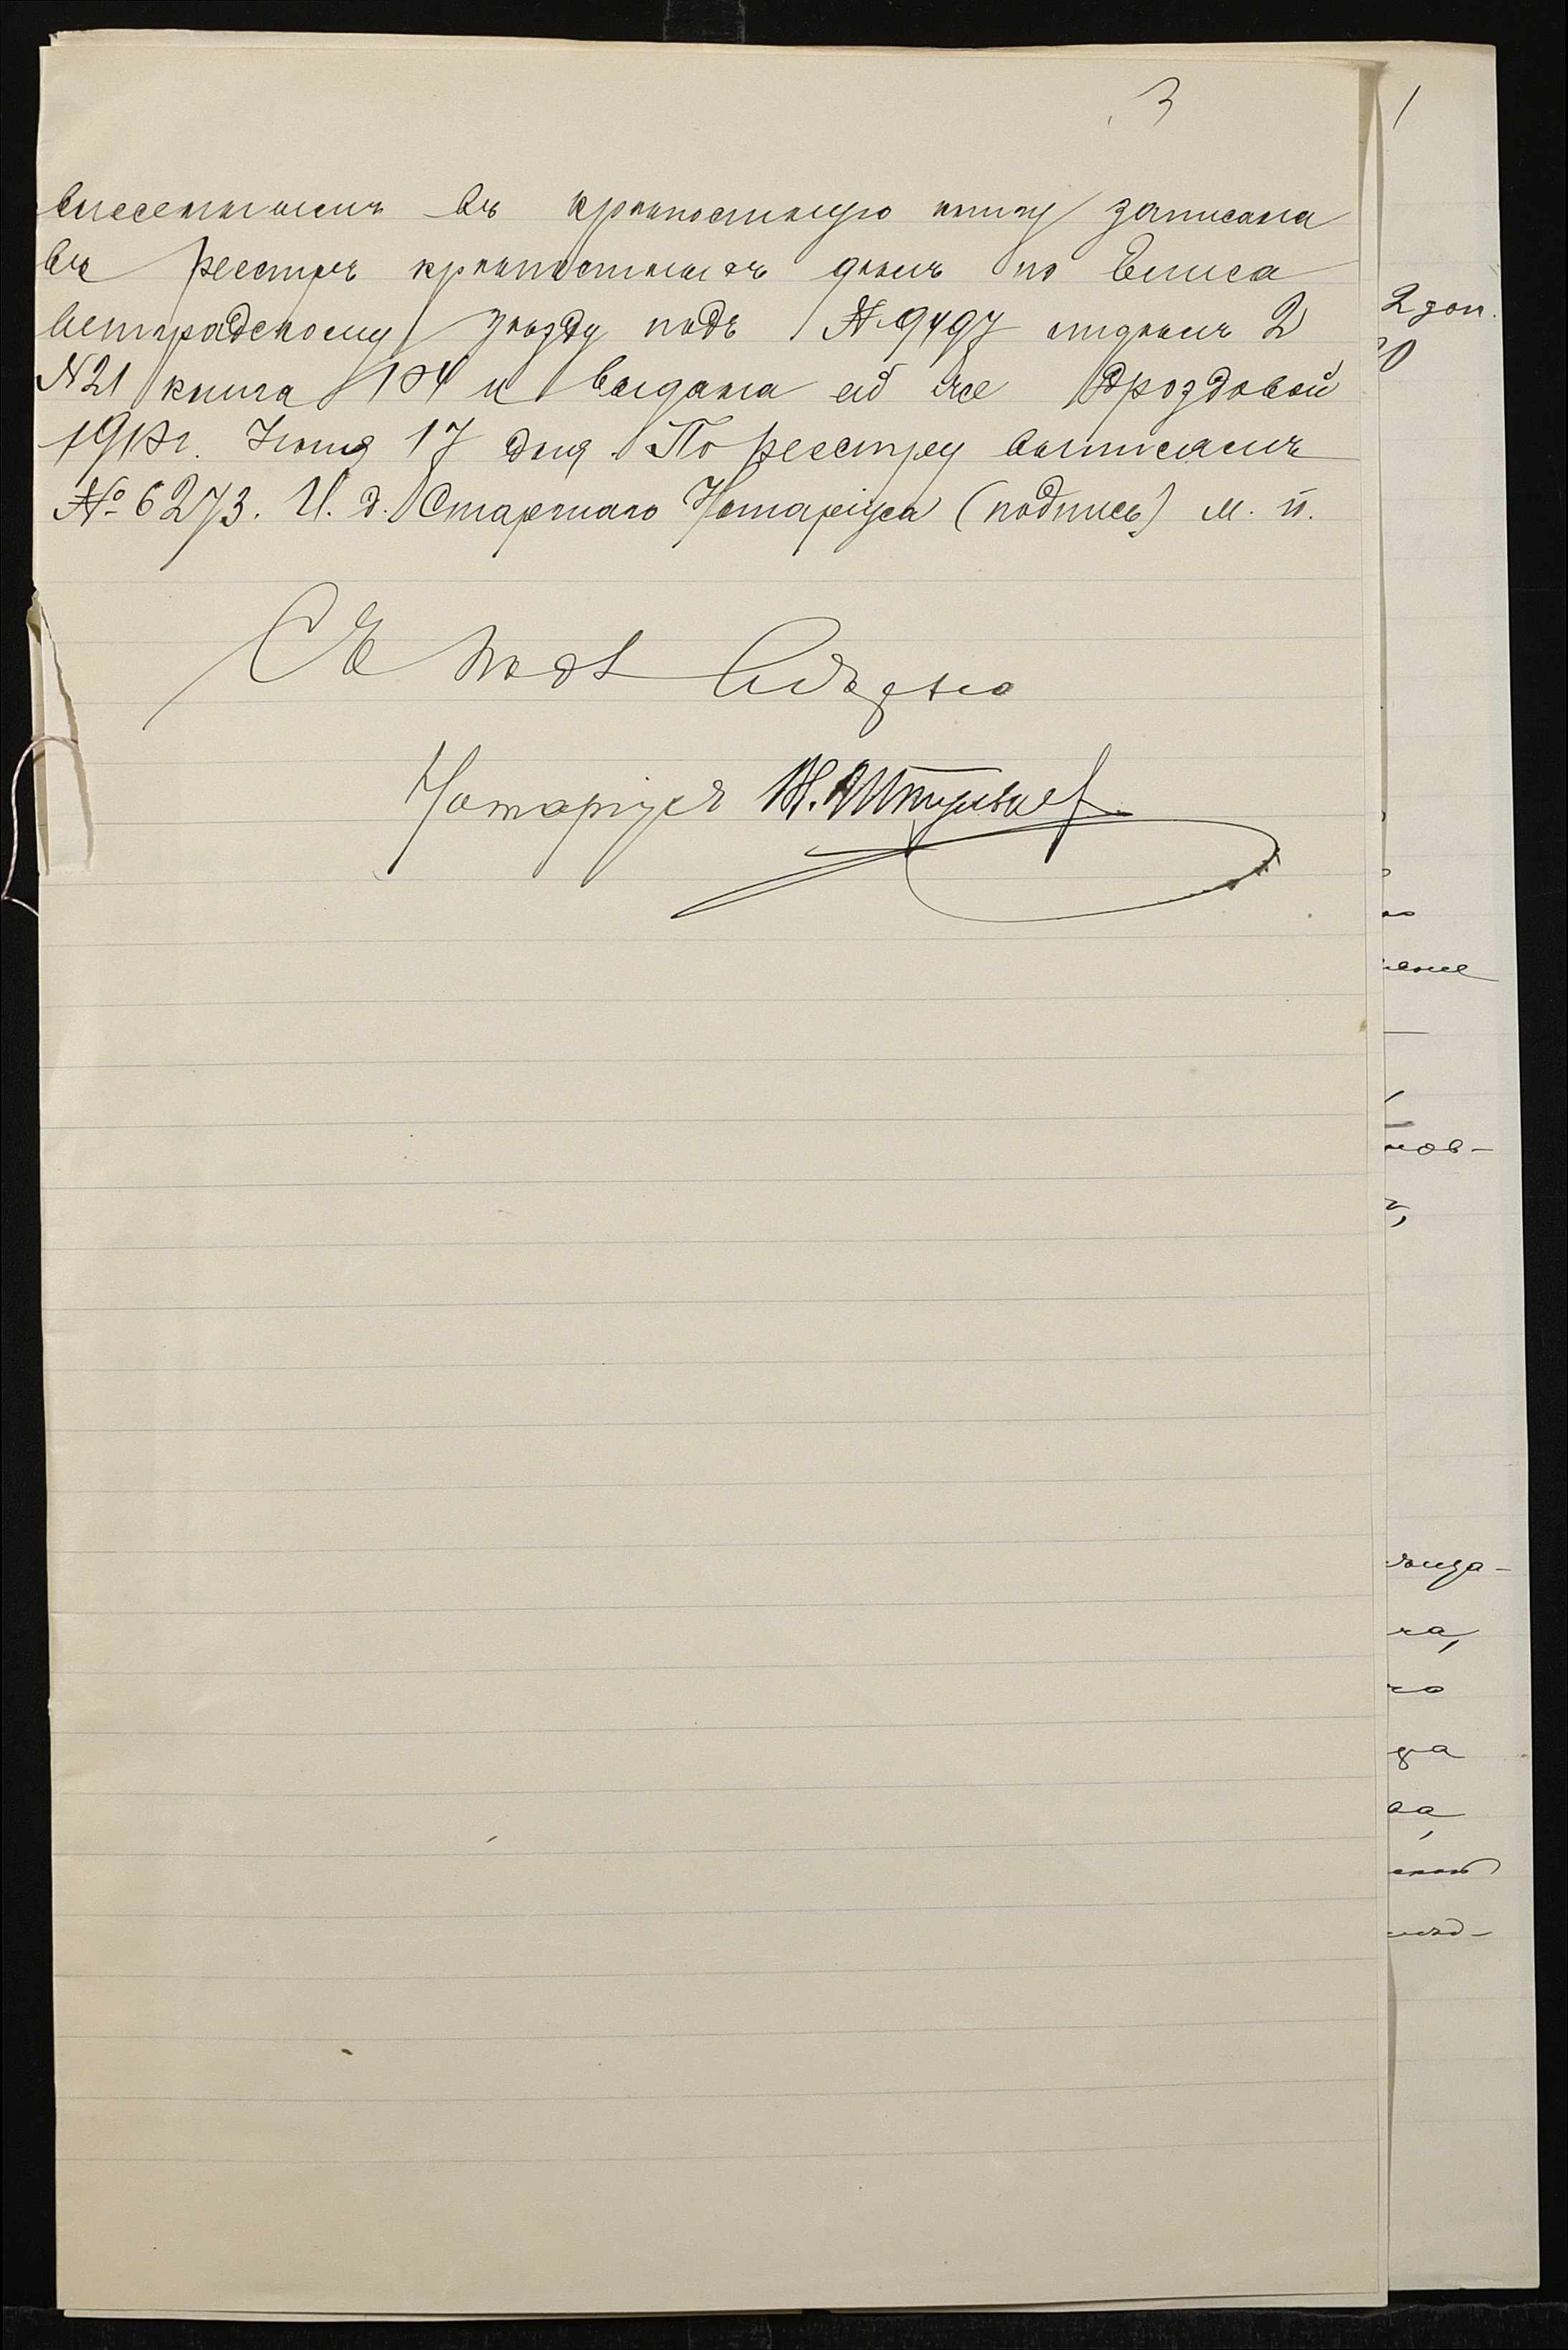 3
внесеннымъ въ крѣпостную книгу записана
въ реестръ крѣпостныхъ дѣлъ по Елиса
ветградскому уѣзду подъ № 9497 отдѣлъ 2
№ 21 книга 104 и выдана ей же Дроздовой
1910 г. Іюня 17 дня. По реестру выписямъ
№ 6273. И. д. Старшаго Нотаріуса (подпись) м. п.
Съ подл свѣрено
Нотаріусъ
1
2 доп.